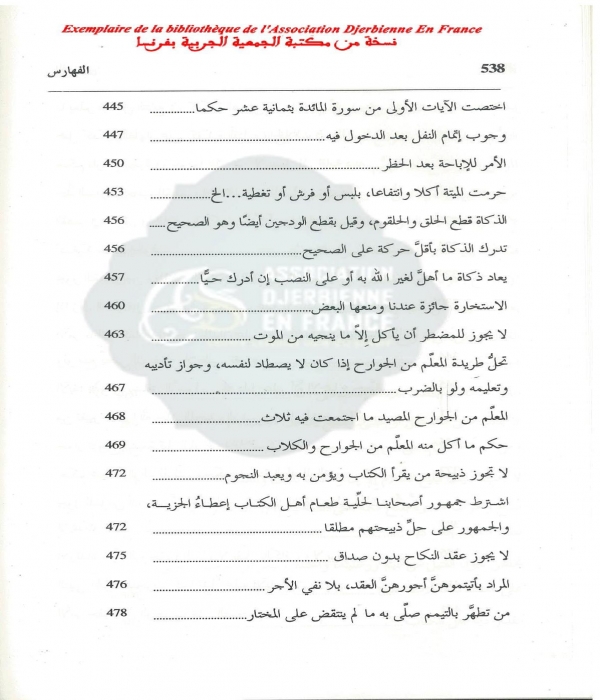 Exemplaire de la bibliothèque de l'Association Djerbienne En France
نسخة من مكتبة الجمعية الجربية بفرنسا
538 الفهارس
اختصت الآيات الأولى من سورة المائدة بثمانية عشر حكما.............. 445
وجوب إتمام النفل بعد الدخول فيه.............. 447
الأمر للإباحة بعد الحظر.............. 450
حرمت الميتة أكلا وانتفاعا، بلبس أو فرش أو تغطية...الخ.............. 453
الذكاة قطع الحلق والحلقوم، وقيل بقطع الودجين أيضًا وهو الصحيح 456
تدرك الذكاة بأقلَّ حركة على الصحيح.............. 456
يعاد ذكاة ما أهلَّ لغير الله به أو على النصب إن أدرك حيًّا.............. 457
الاستخارة جائزة عندنا ومنعها البعض.............. 460
لا يجوز للمضطر أن يأكل إلاَّ ما ينجيه من الموت.............. 463
تحلُّ طريدة المعلّم من الجوارح إذا كان لا يصطاد لنفسه، وجواز تأديبه
وتعليمه ولو بالضرب.............. 467
المعلّم من الجوارح المصيد ما اجتمعت فيه ثلاث.............. 468
حكم ما أكل منه المعلّم من الجوارح والكلاب.............. 469
لا تجوز ذبيحة من يقرأ الكتاب ويؤمن به ويعبد النجوم.............. 472
اشترط جمهور أصحابنا لحلّية طعام أهل الكتاب إعطاءُ الجزية،
والجمهور على حلِّ ذبيحتهم مطلقا.............. 472
لا يجوز عقد النكاح بدون صداق.............. 475
المراد بأتيتموهنَّ أجورهنَّ العقد، بلا نفي الأجر.............. 476
من تطهَّر بالتيمم صلّى به ما لم ينتقض على المختار.............. 478
ASSOCIATION
DJERBIENNE
EN FRANCE